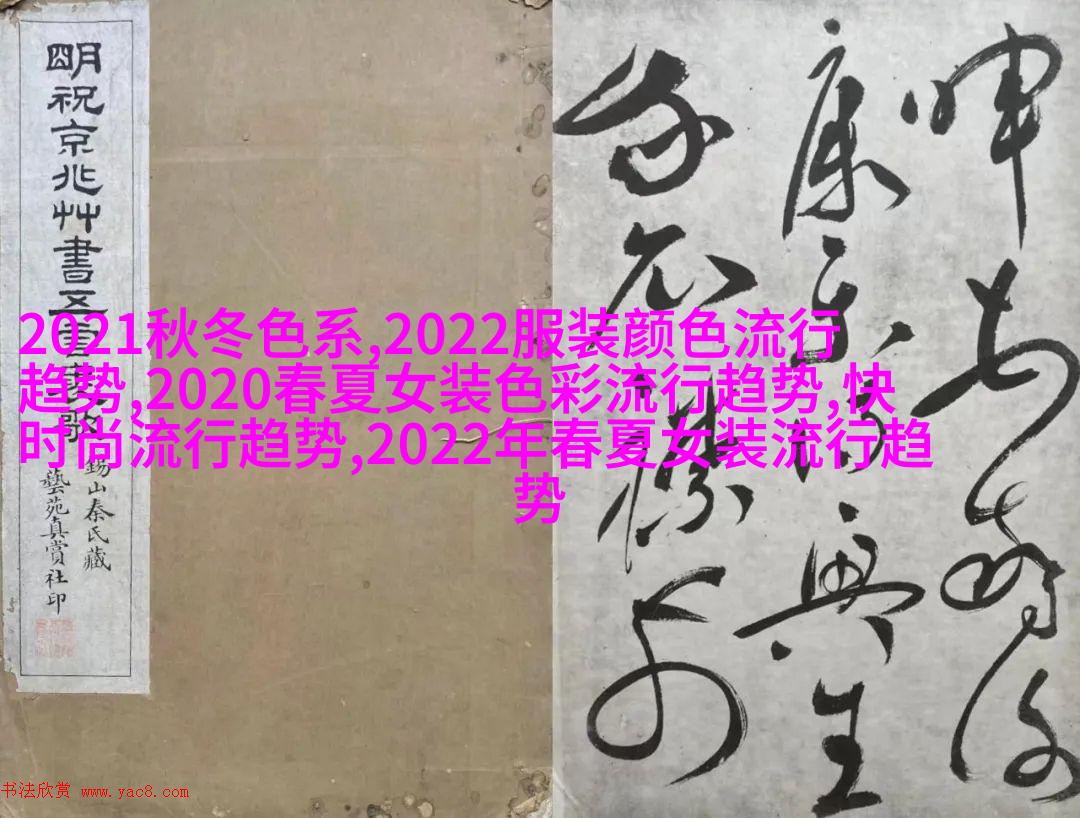 朙祝京兆艸書五雲裘歌
錫山秦氏藏
藝苑真賞社印
暉頓驚謝
康樂詩興生
我衣襟前
2021秋冬色系,2022服装颜色流行
趋势,2020春夏女装色彩流行趋势,快
时尚流行趋势,2022年春夏女装流行趋
势
书法欣赏 www.yac8.com